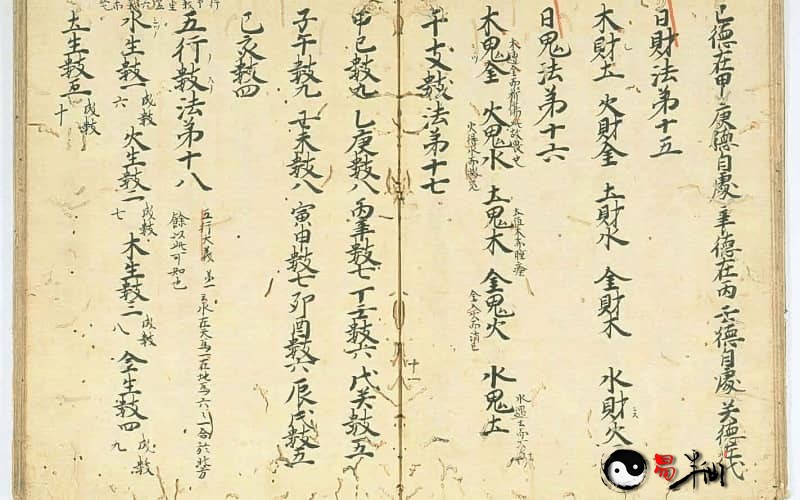 己德在甲 庚德自處 辛德在丙 壬德自處 癸德在戊
日財法第十五
木財土 火財金 土財水 金財木 水財火
日鬼法第十六
木鬼金 火鬼水 土鬼木 金鬼火 水鬼土
火得水而
金入火而消亡
干支數法第十七
十一
甲己數九 乙庚數八 丙辛數七 丁壬數六 戊癸數五
子午數九 丑未數八 寅申數七 卯酉數六 辰戌數五
巳亥數四
五行數法第十八
五行大義 第一云水在天為一在地為六六一合於北方
餘以此可知也
水生數一 成數六 火生數二 成數七 木生數三 成數八 金生數四 成數九
土生數五 成數十
易半仙